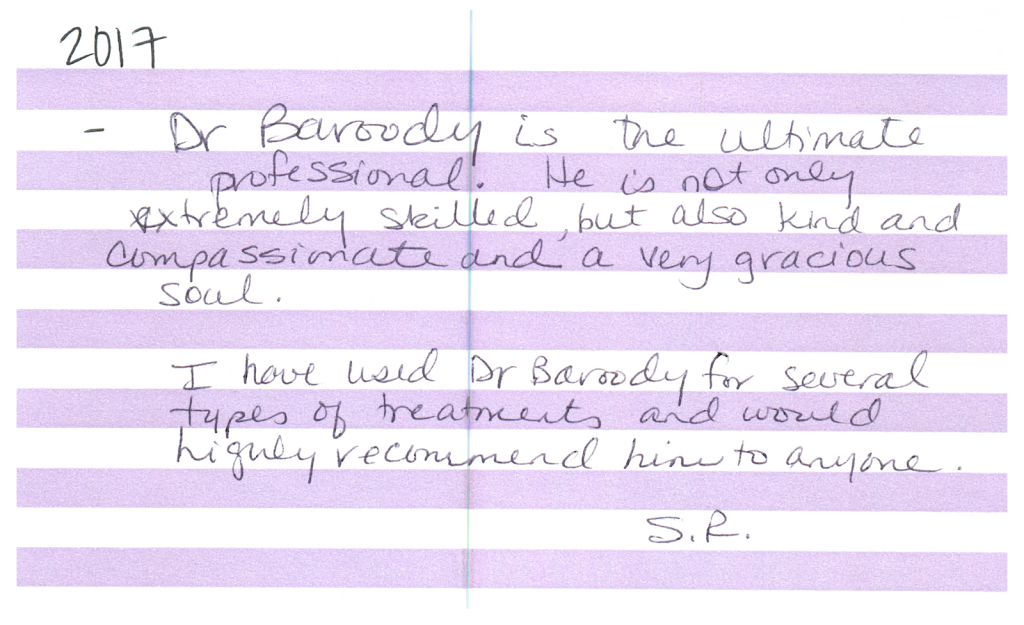 2017
- Dr Baroody is the ultimate
professional. He is not only
extremely skilled, but also kind and
compassionate and a very gracious
soul.
I have used Dr Baroody for several
types of treatments and would
highly recommend him to anyone.
S.R.